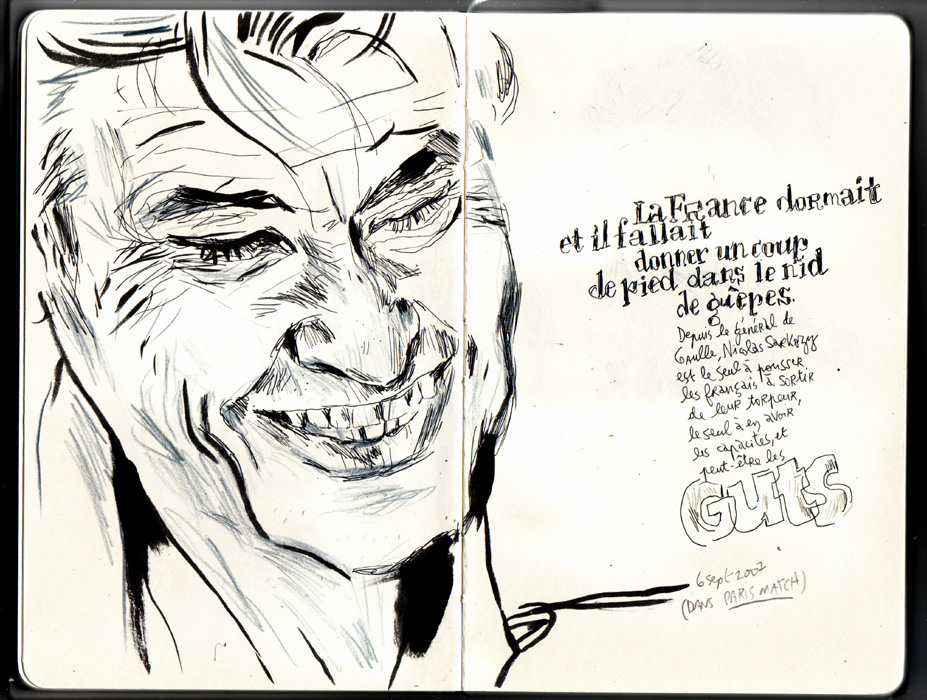 La France dormait
et il fallait
donner un coup
de pied dans le nid
de guêpes.
Depuis le général de
Gaulle, Nicolas Sarkozy
est le seul à pousser
les français à sortir
de leur torpeur,
le seul à en avoir
les capacités, et
peut-être les
GUTS
6 sept 2007
(DANS PARIS MATCH)